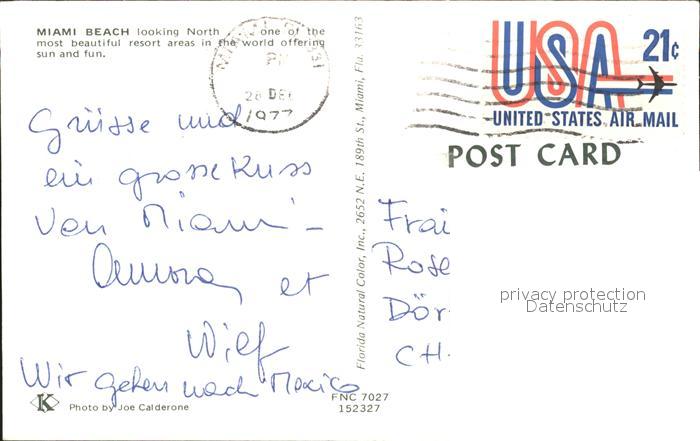 MIAMI BEACH looking North . . . one of the
most beautiful resort areas in the world offering
sun and fun.
PM
28 DEC
1977
USA 21¢
UNITED STATES AIR MAIL
POST CARD
Grüsse und
ein grosse Kuss
von Miami -
et
Wir gehen nach Mexico
Florida Natural Color, Inc., 2652 N.E. 189th St., Miami, Fla. 33163
Rose
Dör
CH.
privacy protection
Datenschutz
K Photo by Joe Calderone
FNC 7027
152327